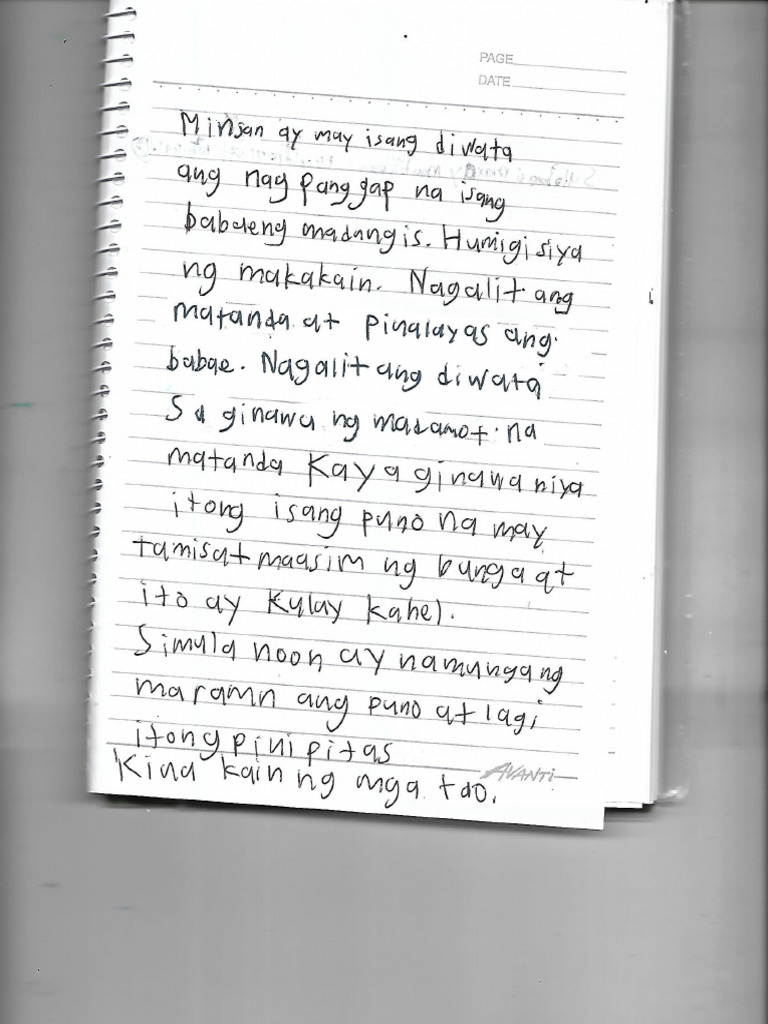 PAGE
DATE
Minsan ay may isang diwata
ang nag panggap na isang
babaeng madungis. Humigi siya
ng makakain. Nagalit ang
matanda at pinalayas ang
babae. Nagalit ang diwata
Sa ginawa ng maramot na
matanda Kaya ginawa niya
itong isang puno na may
tamis at maasim ng bunga at
ito ay Kulay kahel.
Simula noon ay namungang
maramn ang puno at lagi
itong pinipitas
Kina kain ng mga tao.
AVANTi